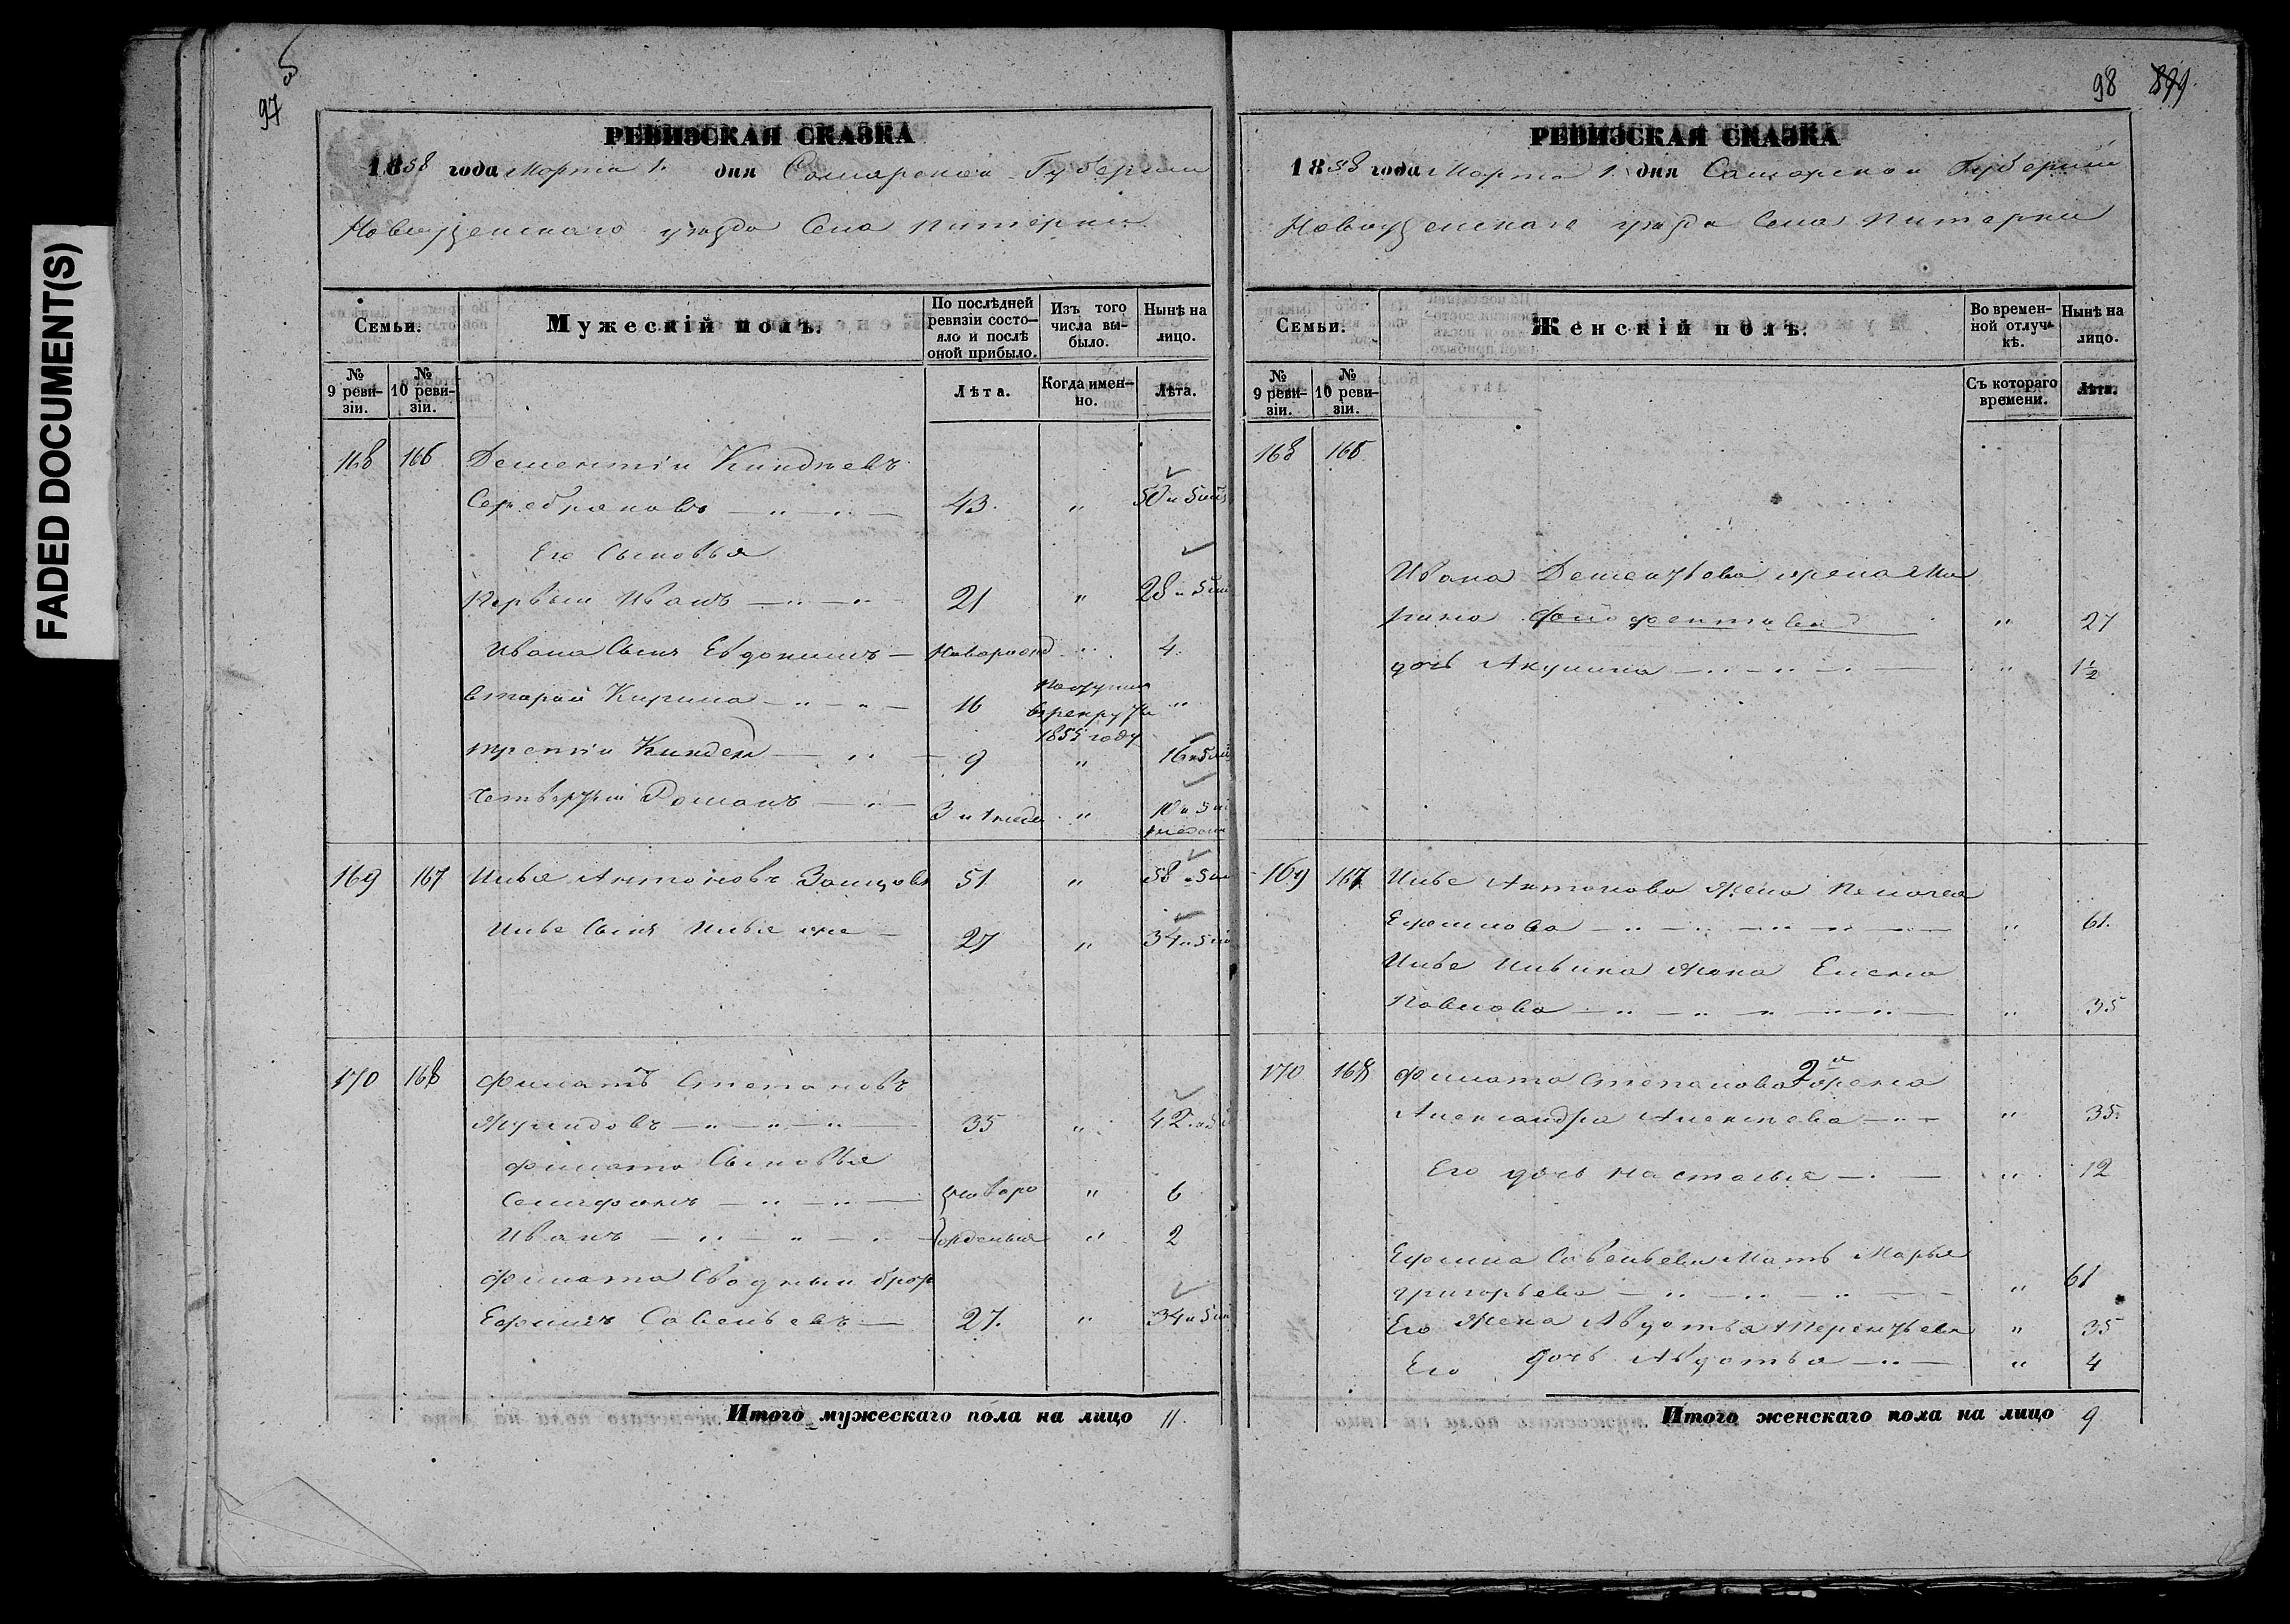 FADED DOCUMENT(S)
97
РЕВИЗСКАЯ СКАЗКА
1858 года Марта 1. дня Самарской Губернии
Новоузенского уезда Села Питерки
Семьи.
Мужескій полъ.
По послѣдней ревизіи состояло и послѣ оной прибыло.
Изъ того числа выбыло.
Нынѣ на лицо.
№ 9 ревизіи.
№ 10 ревизіи.
Лѣта.
Когда именно.
Лѣта.
168 166 Дементій Киндѣевъ
Серебряковъ — " — " — 43. " 50 и 5 мѣс
Его Сыновья
Первый Иванъ — " — " — 21 " 28 и 5 мѣс
Ивана Сынъ Евдокимъ — Новорожд " 4.
вторай Кирила — " — " — 16 Поступил в рекруты 1855 году "
третій Киндей — " — 9 " 16 и 5 мѣс
Четвертый Романъ — " — 3 и 1 недел " 10 и 5 мѣс
169 167 Илья Антоновъ 51 " 58 и 5 мѣс
Ильи Сынъ Илья же — 27 " 34 и 5 мѣс
170 168 Филатъ Степановъ
— " — " — " — 35 " 42 и 5
Филата Сыновья
— " — " — новоро " 6
Иванъ — " — " — " — жденныя " 2
Филата Сводный брат
Ефимъ Савельевъ — 27. " 34 и 5 мѣс
Итого мужескаго пола на лицо 11.
98
РЕВИЗСКАЯ СКАЗКА
1858 года Марта 1. дня Самарской Губерніи
Новоузенскаго уезда Села Питерки
Семьи.
Женскій полъ.
Во временной отлучкѣ.
Нынѣ на лицо.
№ 9 ревизіи.
№ 10 ревизіи.
Съ котораго времени.
Лѣта.
168 166
Ивана Дементьева жена Ма
рина " 27
дочь Акулина — " — " — " — " 1½
169 167 Ильи Антонова жена Пелагея
Ефимова — " — " — " — " — " 61.
Ильи Ильина жена Елена
Павлова — " — " — " — " — " 35
170 168 Филата Степанова 2я жена
Александра Алексѣева — " — " 35.
Его дочь Настасья — " — " 12
Ефима Савельева Мать Марья
Григорьева — " — " — " — " 61
Его жена Авдотья Терентьева " 35
Его дочь Авдотья — " — " 4
Итого женскаго пола на лицо 9